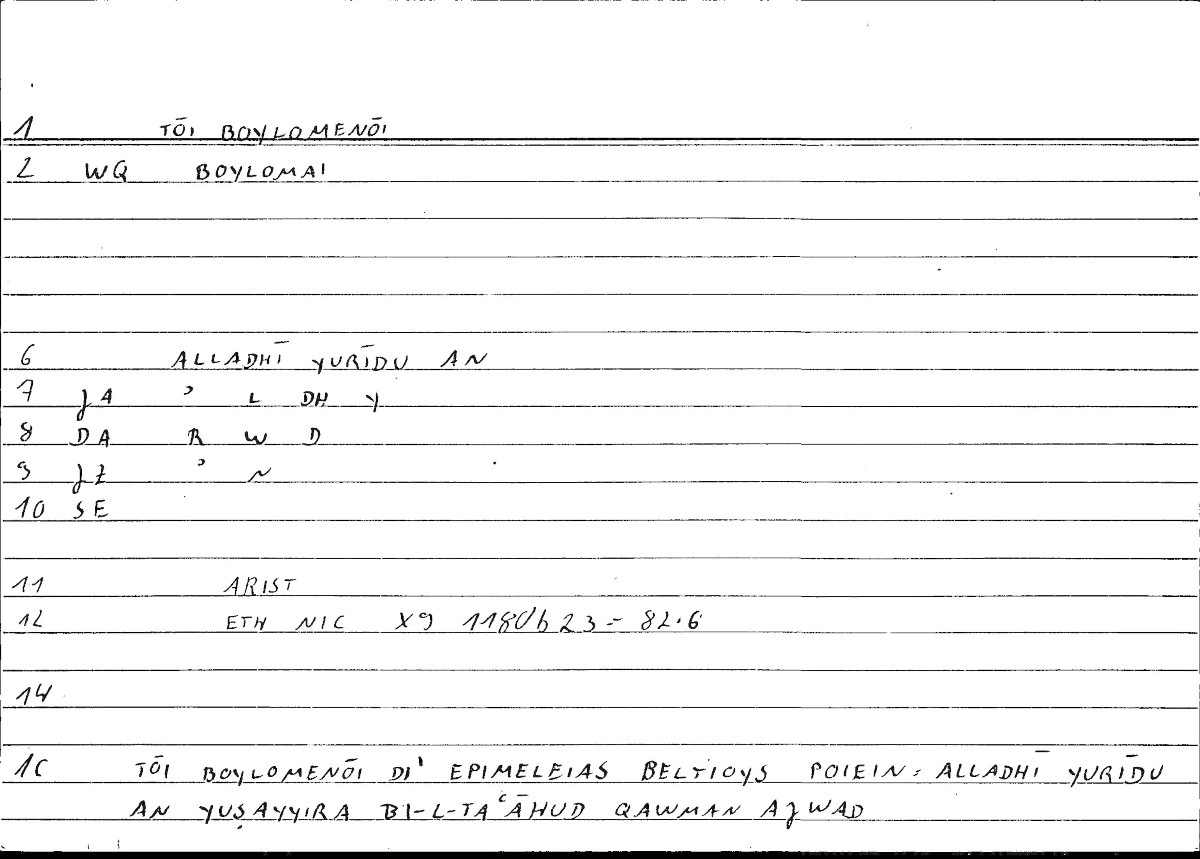 1 TŌI BOYLOMENŌI
2 WQ BOYLOMAI
6 ALLADHĪ YURĪDU AN
7 JA ʾ L DH Y
8 DA R W D
9 JZ ʾ N
10 SE
11 ARIST
12 ETH NIC X9 1180b23 = 82.6
14
15 TŌI BOYLOMENŌI DI' EPIMELEIAS BELTIOYS POIEIN = ALLADHĪ YURĪDU
AN YUṢAYYIRA BI-L-TAʿĀHUD QAWMAN AJWAD